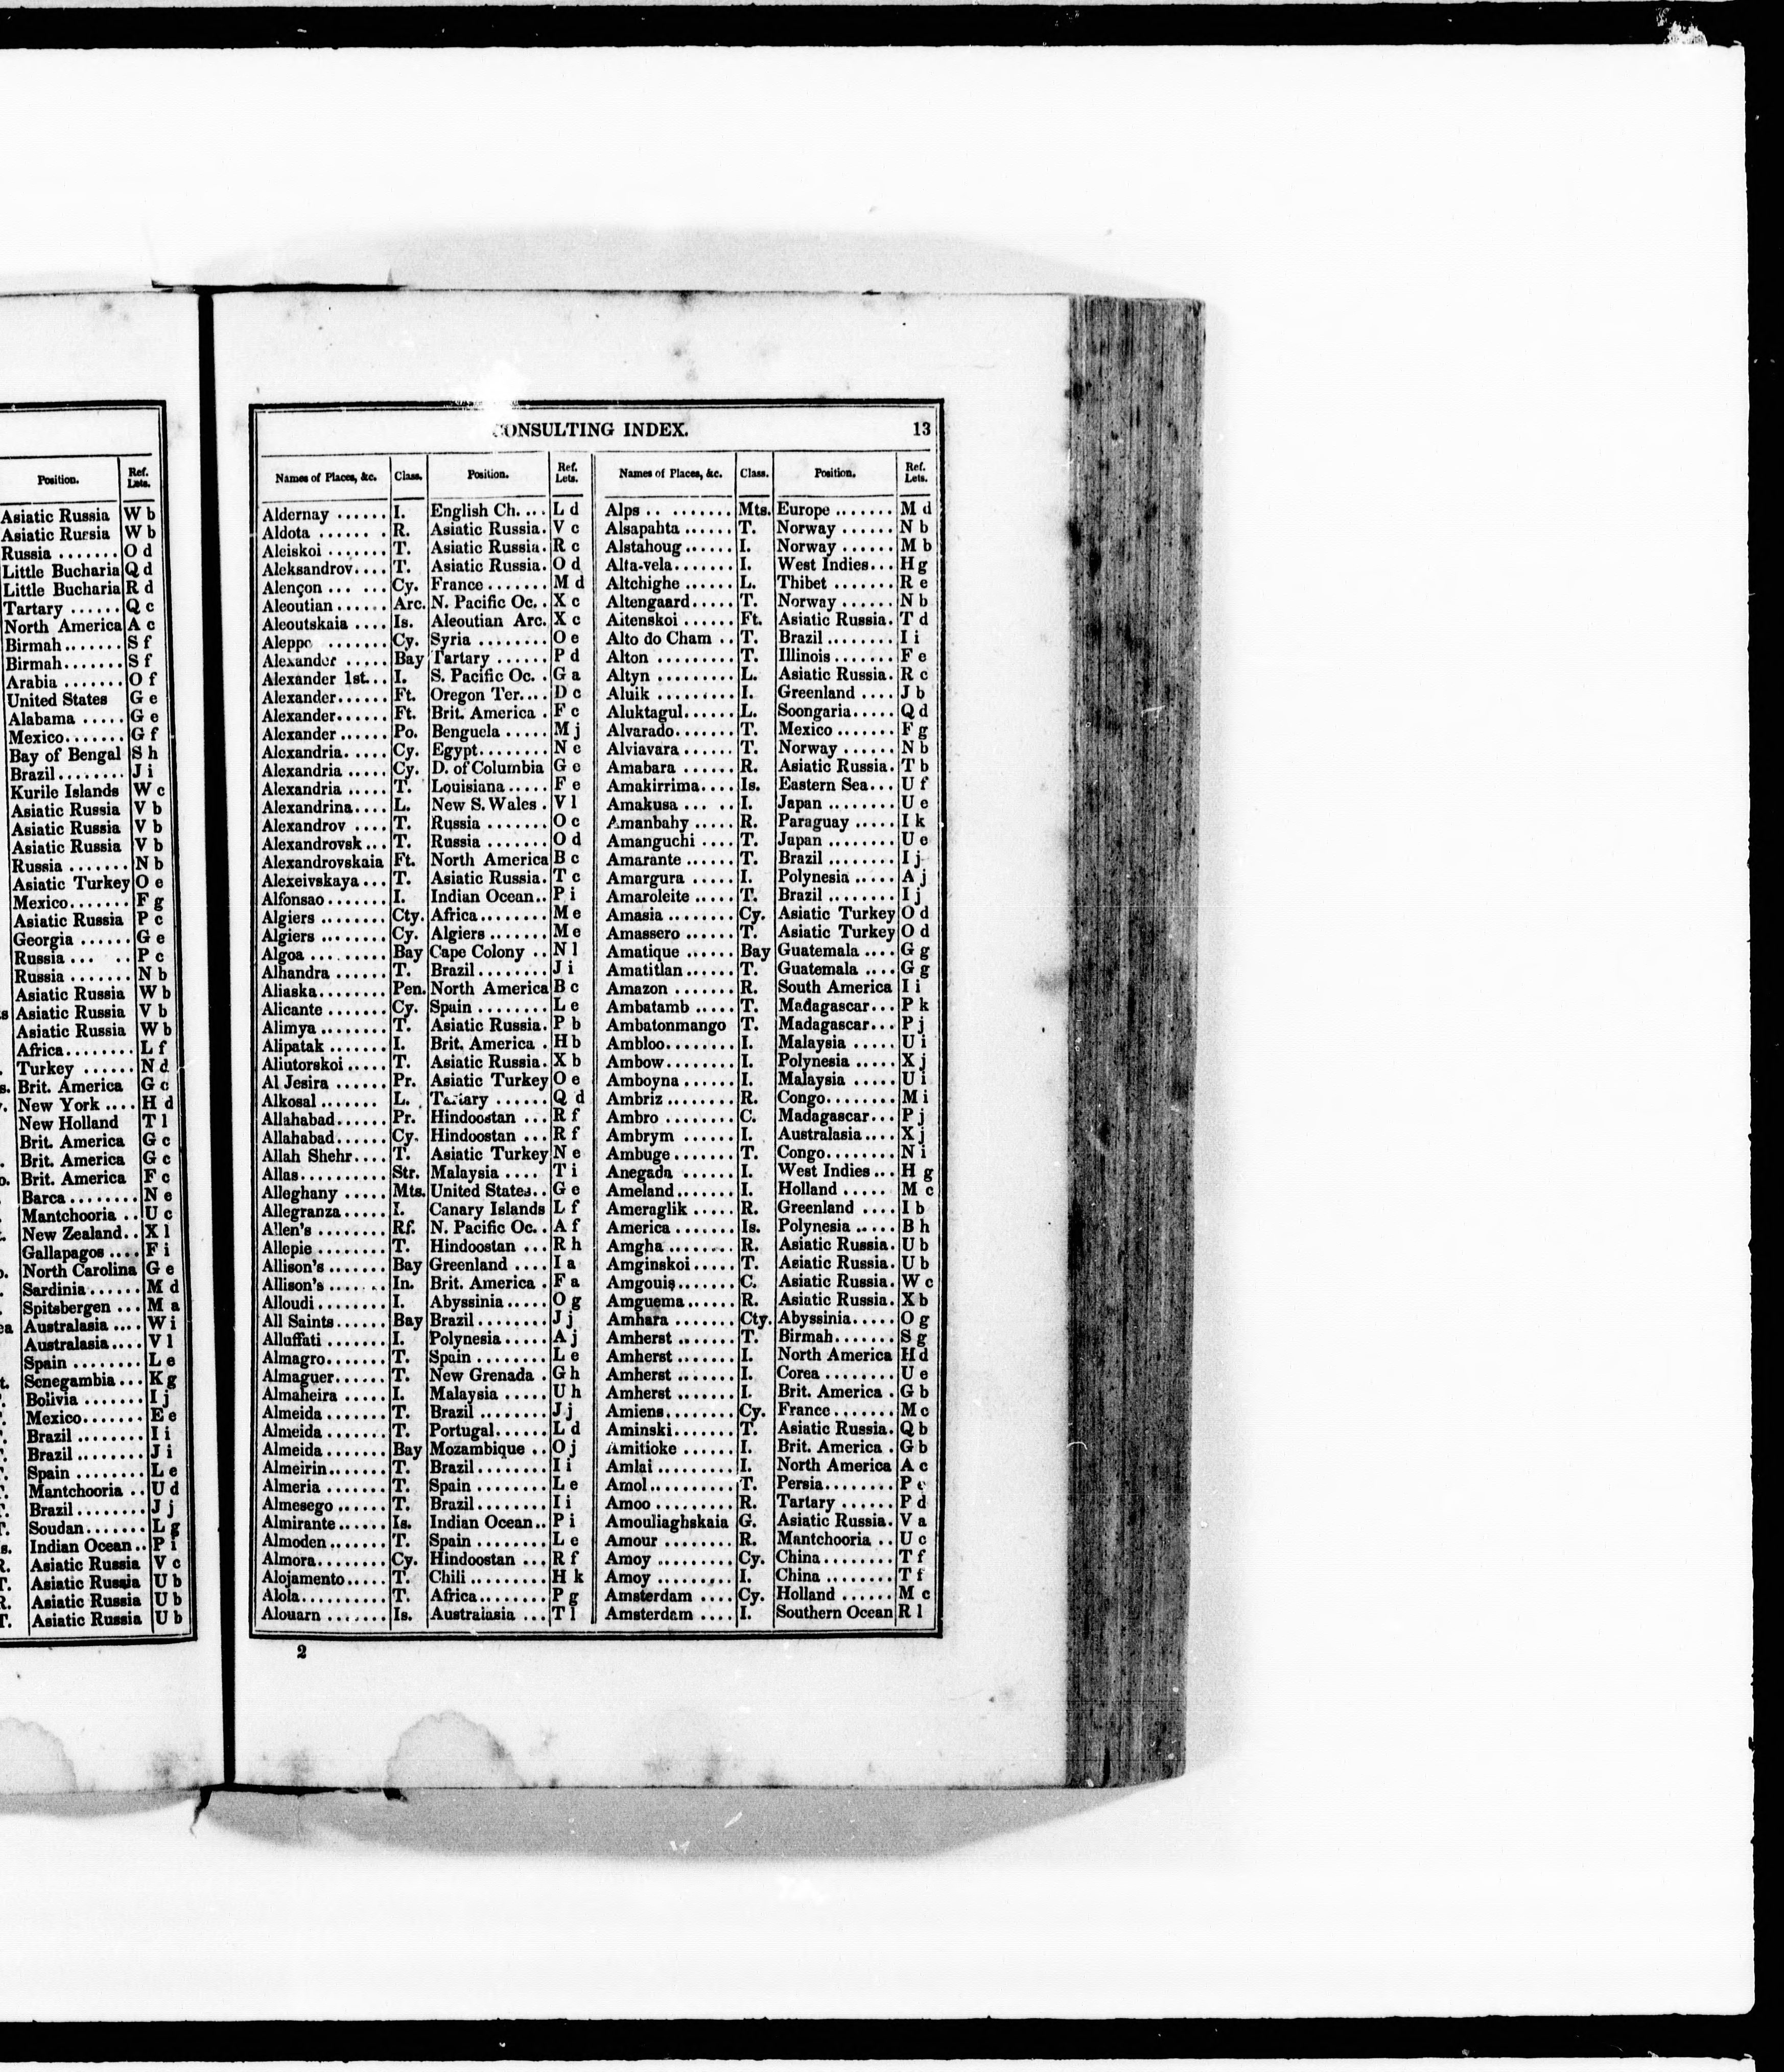 Position. Ref. Lets.
Asiatic Russia W b
Asiatic Russia W b
Russia ....... O d
Little Bucharia Q d
Little Bucharia R d
Tartary ...... Q c
North America A c
Birmah....... S f
Birmah....... S f
Arabia ....... O f
United States G e
Alabama ..... G e
Mexico....... G f
Bay of Bengal S h
Brazil........ J i
Kurile Islands W c
Asiatic Russia V b
Asiatic Russia V b
Asiatic Russia V b
Russia ....... N b
Asiatic Turkey O e
Mexico....... F g
Asiatic Russia P c
Georgia ...... G e
Russia ... .. P c
Russia ....... N b
Asiatic Russia W b
s Asiatic Russia V b
Asiatic Russia W b
Africa........ L f
. Turkey ...... N d
s. Brit. America G c
. New York .... H d
New Holland T l
Brit. America G c
. Brit. America G c
o. Brit. America F c
. Barca ........ N e
Mantchooria .. U c
. New Zealand.. X l
Gallapagos .... F i
o. North Carolina G e
. Sardinia...... M d
. Spitsbergen ... M a
ea Australasia .... W i
Australasia.... V l
Spain ........ L e
t. Senegambia ... K g
. Bolivia ....... I j
. Mexico....... E e
. Brazil ........ I i
. Brazil ........ J i
. Spain ........ L e
. Mantchooria .. U d
. Brazil........ J j
. Soudan....... L g
s. Indian Ocean.. P i
R. Asiatic Russia V c
T. Asiatic Russia U b
R. Asiatic Russia U b
T. Asiatic Russia U b
CONSULTING INDEX. 13
Names of Places, &c. Class. Position. Ref. Lets. Names of Places, &c. Class. Position. Ref. Lets.
Aldernay ...... I. English Ch.... L d Alps .. ....... Mts. Europe ....... M d
Aldota ...... . R. Asiatic Russia. V c Alsapahta ...... T. Norway ...... N b
Aleiskoi ....... T. Asiatic Russia. R c Alstahoug...... I. Norway ...... M b
Aleksandrov.... T. Asiatic Russia. O d Alta-vela....... I. West Indies... H g
Alençon ... ... Cy. France ....... M d Altchighe ...... L. Thibet ....... R e
Aleoutian ...... Arc. N. Pacific Oc. . X c Altengaard..... T. Norway ...... N b
Aleoutskaia .... Is. Aleoutian Arc. X c Aitenskoi ...... Ft. Asiatic Russia. T d
Aleppo ....... Cy. Syria ........ O e Alto do Cham .. T. Brazil ........ I i
Alexander ..... Bay Tartary ...... P d Alton ......... T. Illinois ....... F e
Alexander 1st... I. S. Pacific Oc. . G a Altyn ......... L. Asiatic Russia. R c
Alexander...... Ft. Oregon Ter.... D c Aluik ......... I. Greenland .... J b
Alexander...... Ft. Brit. America . F c Aluktagul...... L. Soongaria..... Q d
Alexander ...... Po. Benguela ..... M j Alvarado....... T. Mexico ....... F g
Alexandria. .... Cy. Egypt........ N e Alviavara ...... T. Norway ...... N b
Alexandria ..... Cy. D. of Columbia G e Amabara ...... R. Asiatic Russia. T b
Alexandria ..... T. Louisiana ..... F e Amakirrima.... Is. Eastern Sea... U f
Alexandrina.... L. New S. Wales . V l Amakusa ... .. I. Japan ........ U e
Alexandrov .... T. Russia ....... O c Amanbahy ..... R. Paraguay ..... I k
Alexandrovsk... T. Russia ....... O d Amanguchi .... T. Japan ........ U e
Alexandrovskaia Ft. North America B c Amarante ...... T. Brazil ........ I j
Alexeivskaya... T. Asiatic Russia. T c Amargura ..... I. Polynesia ..... A j
Alfonsao ....... I. Indian Ocean.. P i Amaroleite ..... T. Brazil ........ I j
Algiers ........ Cty. Africa........ M e Amasia ........ Cy. Asiatic Turkey O d
Algiers ........ Cy. Algiers ....... M e Amassero ...... T. Asiatic Turkey O d
Algoa ... ...... Bay Cape Colony .. N l Amatique ...... Bay Guatemala .... G g
Alhandra ...... T. Brazil ........ J i Amatitlan ...... T. Guatemala .... G g
Aliaska........ Pen. North America B c Amazon ....... R. South America I i
Alicante ....... Cy. Spain ........ L e Ambatamb ..... T. Madagascar... P k
Alimya ........ T. Asiatic Russia. P b Ambatonmango T. Madagascar... P j
Alipatak ....... I. Brit. America . H b Ambloo........ I. Malaysia ..... U i
Aliutorskoi ..... T. Asiatic Russia. X b Ambow........ I. Polynesia ..... X j
Al Jesira ...... Pr. Asiatic Turkey O e Amboyna ...... I. Malaysia ..... U i
Alkosal ....... L. Tartary ...... Q d Ambriz ........ R. Congo........ M i
Allahabad...... Pr. Hindoostan ... R f Ambro ........ C. Madagascar... P j
Allahabad...... Cy. Hindoostan ... R f Ambrym ...... I. Australasia.... X j
Allah Shehr.... T. Asiatic Turkey N e Ambuge....... T. Congo........ N i
Allas.......... Str. Malaysia .... T i Anegada ...... I. West Indies... H g
Alleghany ..... Mts. United States.. G e Ameland....... I. Holland ..... M c
Allegranza..... I. Canary Islands L f Ameraglik ..... R. Greenland .... I b
Allen's ........ Rf. N. Pacific Oc. . A f America ....... Is. Polynesia ..... B h
Allepie ........ T. Hindoostan ... R h Amgha ........ R. Asiatic Russia. U b
Allison's ....... Bay Greenland .... I a Amginskoi ..... T. Asiatic Russia. U b
Allison's ....... In. Brit. America . F a Amgouis....... C. Asiatic Russia. W c
Alloudi ........ I. Abyssinia..... O g Amguema...... R. Asiatic Russia. X b
All Saints...... Bay Brazil........ J j Amhara ....... Cty. Abyssinia..... O g
Alluffati ....... I. Polynesia..... A j Amherst ....... T. Birmah....... S g
Almagro....... T. Spain ........ L e Amherst ....... I. North America H d
Almaguer...... T. New Grenada . G h Amherst ....... I. Corea ........ U e
Almaheira ..... I. Malaysia ..... U h Amherst ....... I. Brit. America . G b
Almeida ....... T. Brazil ........ J j Amiens........ Cy. France ....... M c
Almeida ....... T. Portugal...... L d Aminski....... T. Asiatic Russia. Q b
Almeida ....... Bay Mozambique .. O j Amitioke ...... I. Brit. America . G b
Almeirin....... T. Brazil........ I i Amlai ......... I. North America A c
Almeria ....... T. Spain ........ L e Amol.......... T. Persia........ P
Almesego ...... T. Brazil........ I i Amoo ......... R. Tartary ...... P d
Almirante...... Is. Indian Ocean.. P i Amouliaghskaia G. Asiatic Russia. V a
Almoden....... T. Spain ........ L e Amour ........ R. Mantchooria .. U c
Almora........ Cy. Hindoostan ... R f Amoy ......... Cy. China........ T f
Alojamento..... T. Chili ......... H k Amoy ......... I. China ........ T f
Alola.......... T. Africa........ P g Amsterdam .... Cy. Holland ...... M c
Alouarn ....... Is. Australasia ... T l Amsterdam .... I. Southern Ocean R l
2